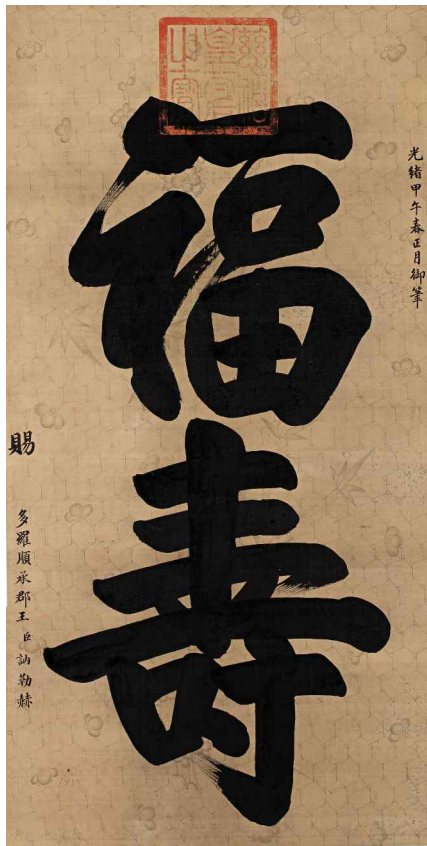 慈禧皇太后之寶
光緒甲午春正月御筆
福壽
賜
多羅順承郡王臣訥勒赫